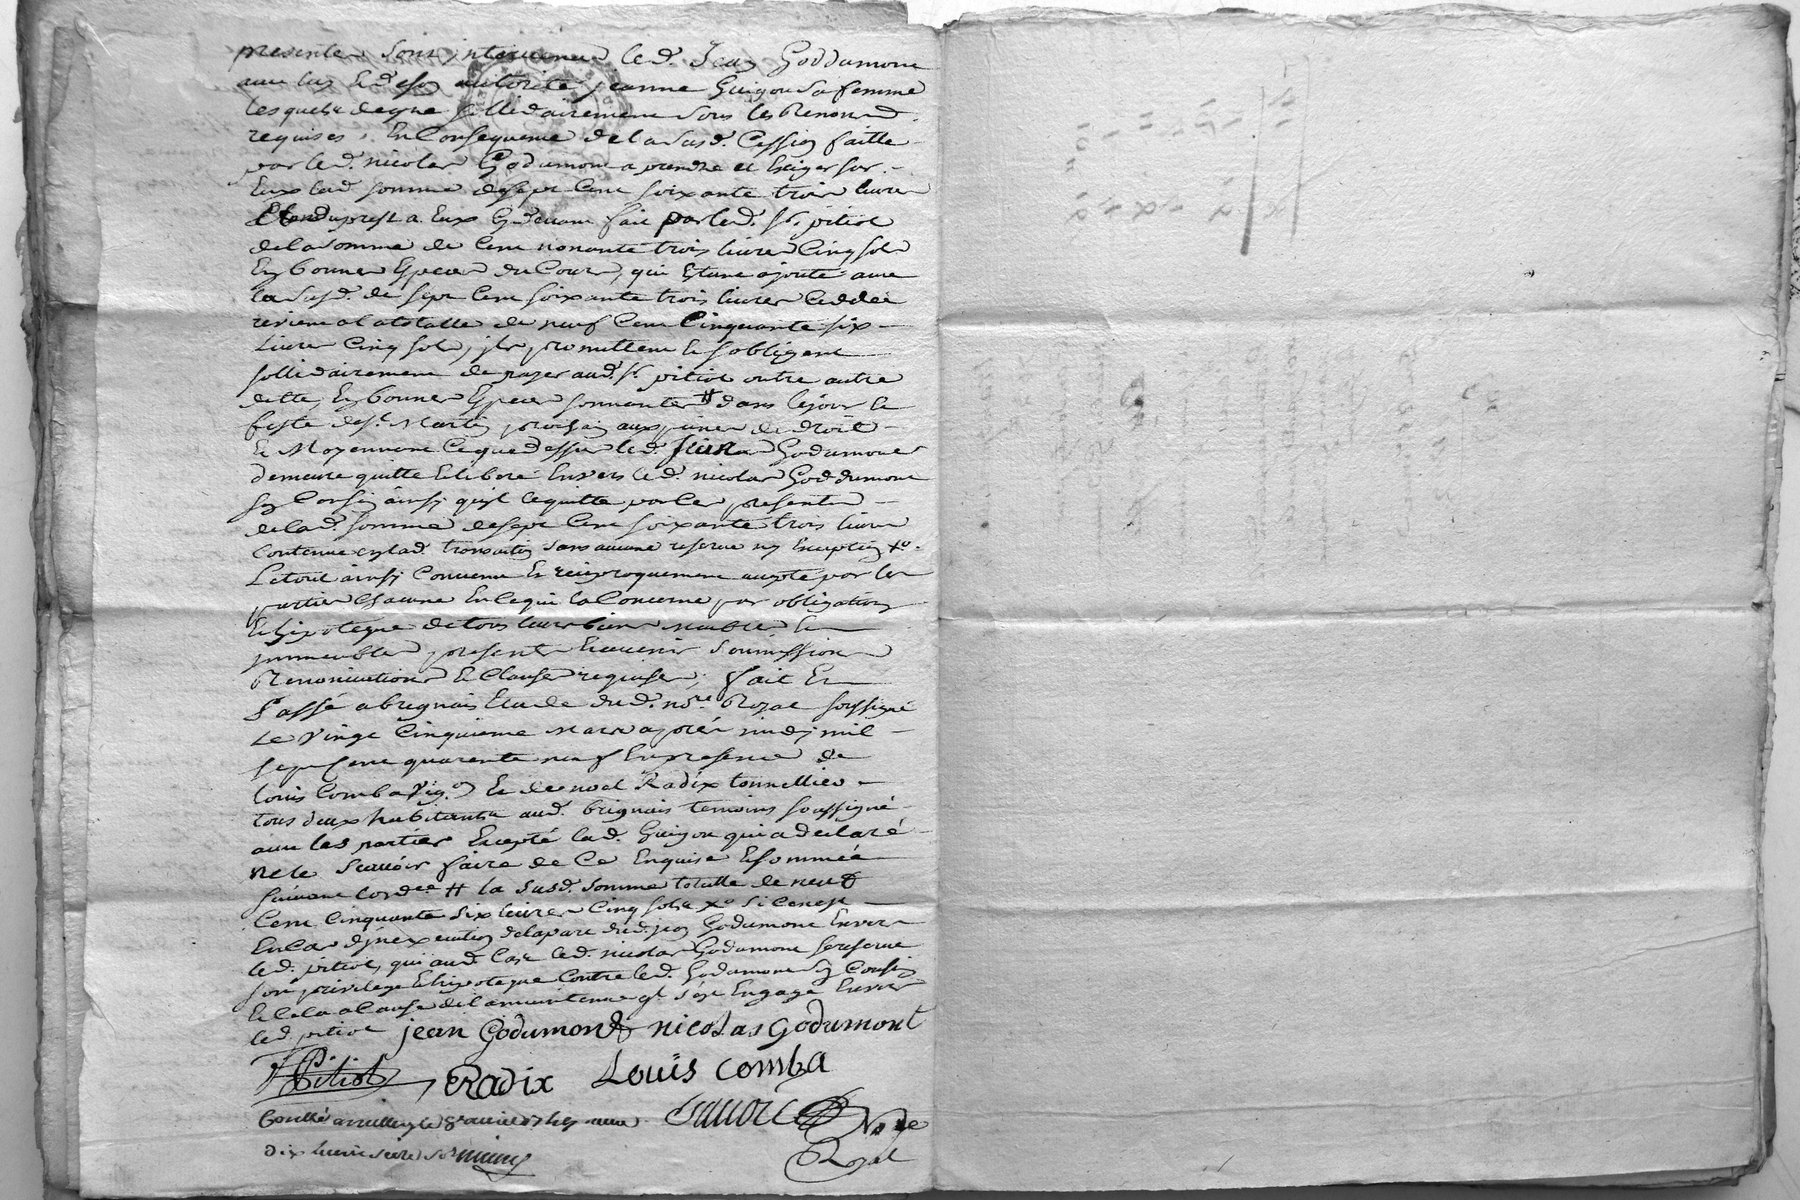 presentes sont intervenus led. Jean Goddumont
avec luy et de son autorité jeanne Guigou sa femme
lesquels de gré sollidairement sous les Renon.
requises, En Consequence de la susd. Cession faitte
par led. nicolas Godumont a prendre et Exiger sur
Eux lad. somme de sept Cent soixante trois livres
Et du prest a Eux Cy devant fait par led. sr. pitiot
de la somme de Cent nonante trois livres Cinq sols
En bonnes Especes du Cours, qui Etant ajouté avec
la susd. de sept Cent soixante trois livres Ceddée
revient a la totalle de neuf Cent Cinquante six
Livres Cinq sols, jls promettent et s'obligent
sollidairement de payer aud. sr. pitiot outre autre
dette, En bonnes Especes sonnantes # dans le jour et
feste de st. Martin prochain aux peines de droit
Et Moyennant Ce que dessus led. Jean Godumont
demeure quitte et liberé Envers led. nicolas Goddumont
son Cousin ainsy qu'jl le quitte par Ces presentes
de lad. somme de sept Cent soixante trois livres
Contenue en lad. transaction sans aucune reserve ny Exception Xo.
Le tout ainsy Convenu Et reciproquement accepté par les
parties chacune En Ce qui la Concerne par obligation
Et hipoteque de tous leurs biens meubles et
immeubles presents Et avenir soumissions
Renonciations Et Clauses requises; fait Et
Passé a brignais Etude dud. nore. Royal soussigné
Le Vingt Cinquieme Mars après midy mil
sept Cent quarente neuf En presence de
louis Comba Vig.on Et de noel Radix tonnellier
tous deux habitants aud. brignais temoins soussignés
avec les parties Excepté lad. Guigou qui a declaré
ne le scavoir faire de Ce Enquise Et sommée
suivant l'ordce # la susd. somme totalle de neuf
Cent Cinquante six livres Cinq sols Xo si Ce n'est
En Cas d'jnexecution de la part dud. jean Godumont Envers
led. pitiot, qui aud. Cas led. nicolas Godumont se reserve
son privilege Et hipoteque Contre led. Godumont son Cousin
Et Cela a Cause de la maintenue ql s'est Engagé Envers
led. pitiot jean Godumond nicolas godumont
Pitiot Radix Louis comba
Conllé a millery le 8e avril 1749 reçu
dix livres seize s.
Nore
Royal